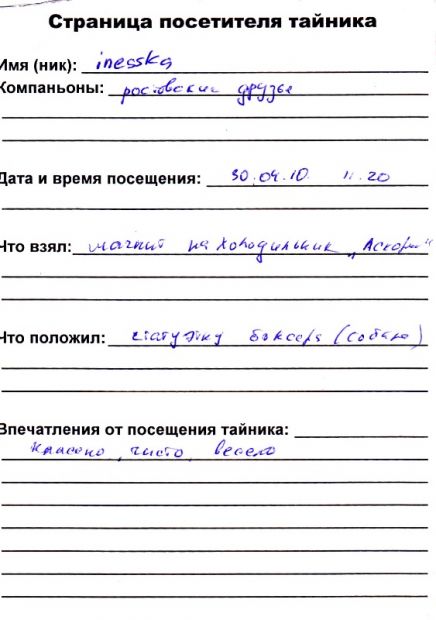 Страница посетителя тайника
Имя (ник): inesska
Компаньоны: ростовские друзья
Дата и время посещения: 30.04.10 11.20
Что взял: магнит на холодильник
Что положил: статуэтку боксера (собака)
Впечатления от посещения тайника:
Классно, чисто, весело